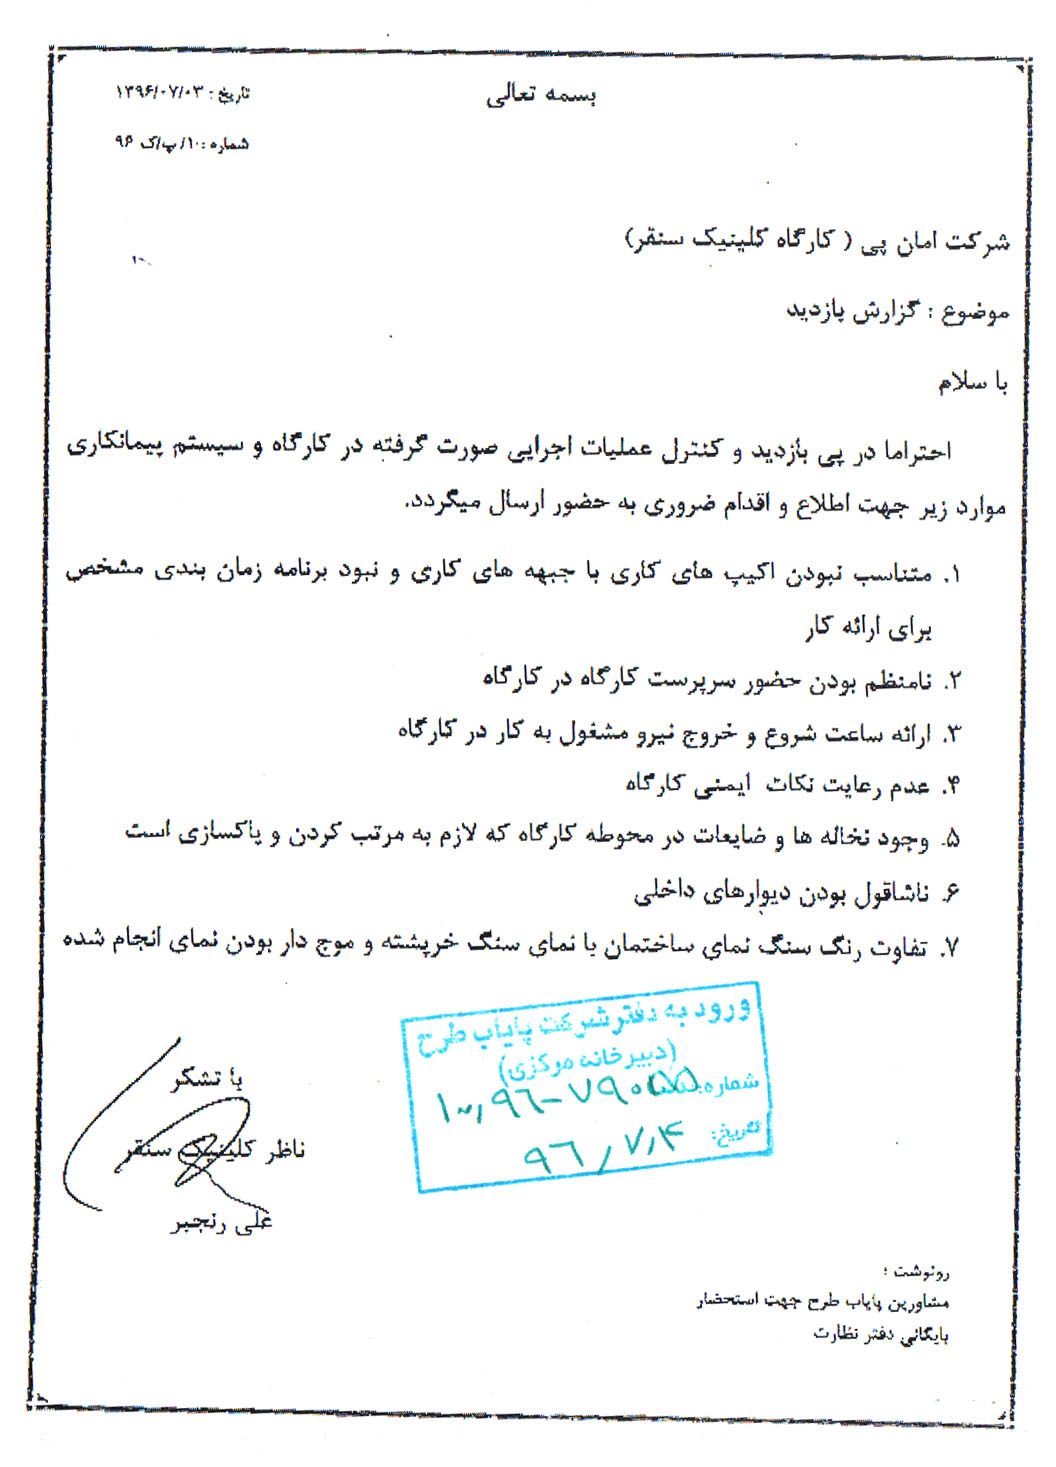 بسمه تعالی
تاریخ : ۱۳۹۶/۰۷/۰۳
شماره :۱۰/پ/ک ۹۶
شرکت امان پی ( کارگاه کلینیک سنقر)
موضوع : گزارش بازدید
با سلام
احتراما در پی بازدید و کنترل عملیات اجرایی صورت گرفته در کارگاه و سیستم پیمانکاری
موارد زیر جهت اطلاع و اقدام ضروری به حضور ارسال میگردد.
۱. متناسب نبودن اکیپ های کاری با جبهه های کاری و نبود برنامه زمان بندی مشخص
برای ارائه کار
۲. نامنظم بودن حضور سرپرست کارگاه در کارگاه
۳. ارائه ساعت شروع و خروج نیرو مشغول به کار در کارگاه
۴. عدم رعایت نکات ایمنی کارگاه
۵. وجود نخاله ها و ضایعات در محوطه کارگاه که لازم به مرتب کردن و پاکسازی است
۶. ناشاقول بودن دیوارهای داخلی
۷. تفاوت رنگ سنگ نمای ساختمان با نمای سنگ خرپشته و موج دار بودن نمای انجام شده
ورود به دفتر شرکت پایاب طرح
(دبیرخانه مرکزی)
شماره:
تاریخ: ۹۶/۷/۴
با تشکر
ناظر کلینیک سنقر
علی رنجبر
رونوشت :
مشاورین پایاب طرح جهت استحضار
بایگانی دفتر نظارت